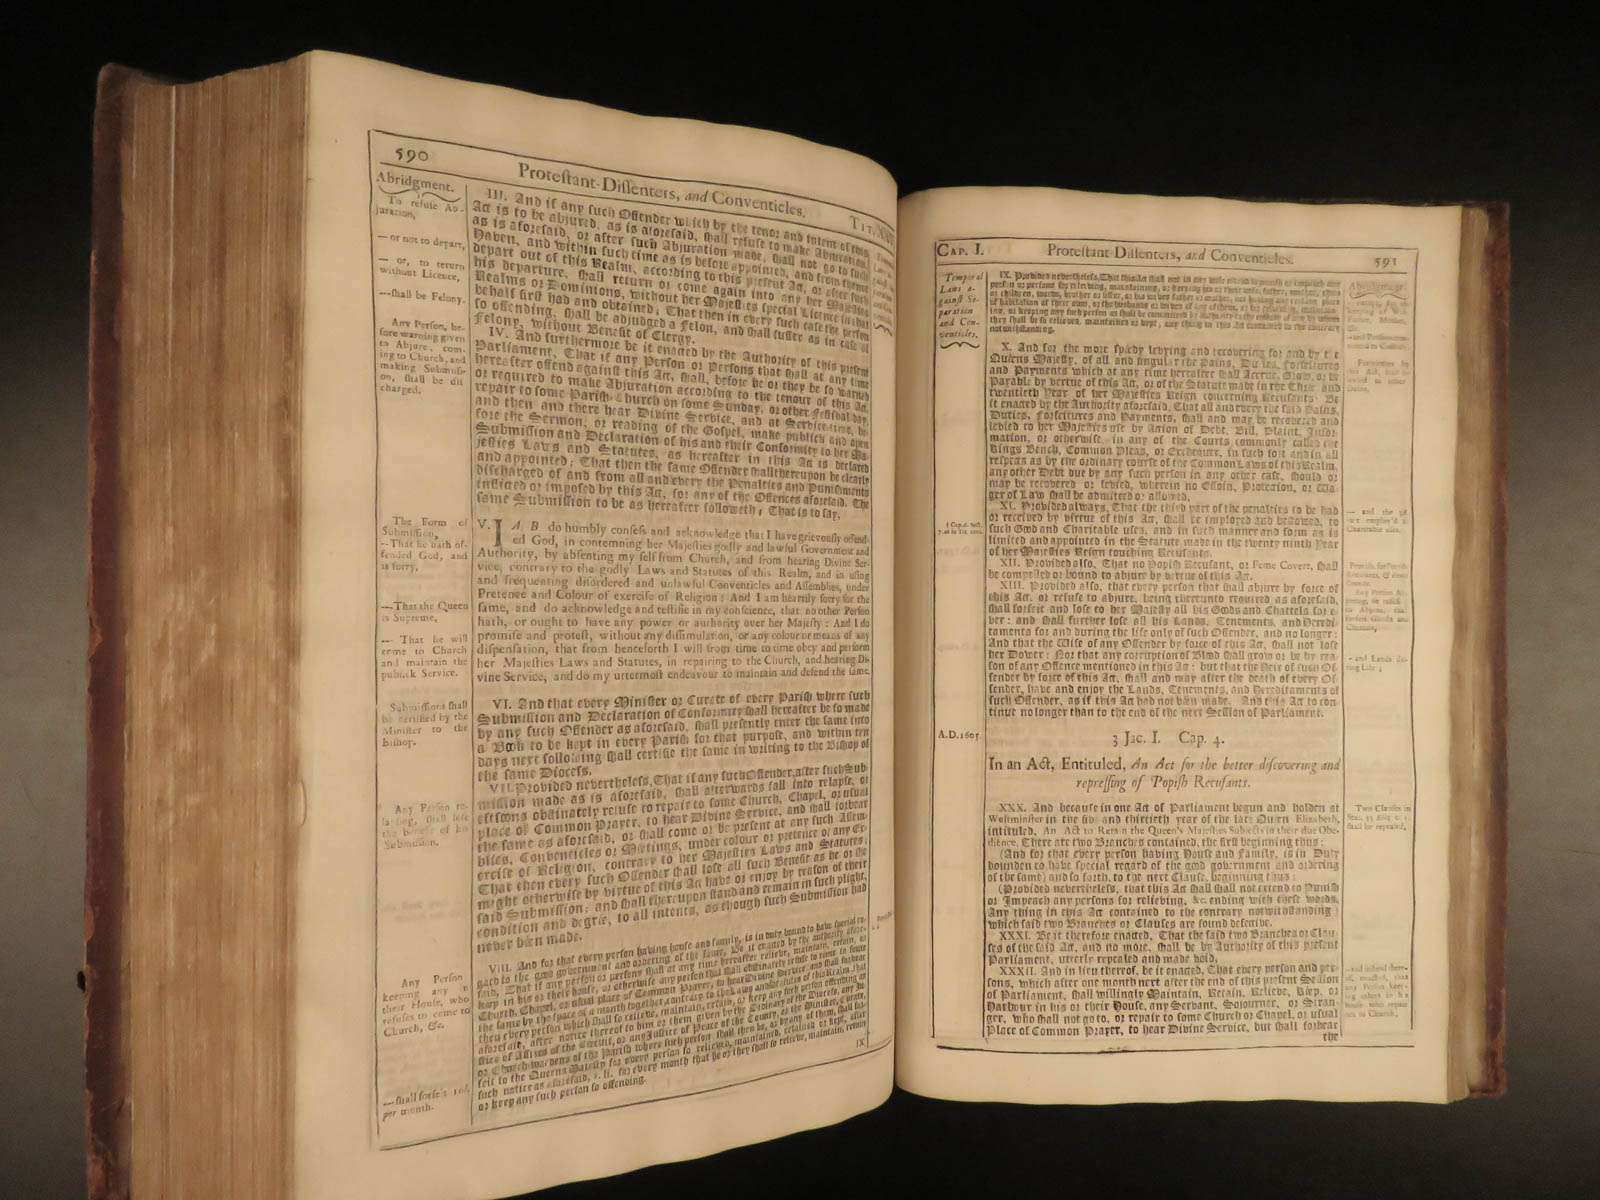 590
Protestant-Dissenters, and Conventicles.
Abridgment.
To refuse Ab-
juration,
— or not to depart,
— or, to return
without Licence,
—shall be Felony.
Any Person, be-
fore warning given
to Abjure, com-
ing to Church, and
making Submissi-
on, shall be dis
charged.
The Form of
Submission,
—That he hath of-
fended God, and
is sorry,
—That the Queen
is Supreme,
— That he will
come to Church
and maintain the
publick Service.
Submissions shall
be certified by the
Minister to the
Bishop.
Any Person re-
lapsing, shall lose
the benefit of his
Submission.
Any Person
keeping any in
their House, who
refuses to come to
Church, &c.
—shall forfeit 10l.
per month.
III. And if any such Offender which by the tenor and intent of this
Act is to be abjured, as is aforesaid, shall refuse to make Abjuration
as is aforesaid, or after such Abjuration made, shall not go to such
Haven, and within such time as is before appointed, and from thence
depart out of this Realm, according to this present Act, or after such
his departure, shall return or come again into any her Majesties
Realms or Dominions, without her Majesties special Licence in that
behalf first had and obtained; That then in every such case the person
so offending, shall be adjudged a Felon, and shall suffer as in case of
Felony, without Benefit of Clergy.
IV. And furthermore be it enacted by the Authority of this present
Parliament, That if any Person or Persons that shall at any time
hereafter offend against this Act, shall, before he or they be so warned
or required to make Abjuration according to the tenour of this Act,
repair to some Parish-Church on some Sunday, or other Festival day,
and then and there hear Divine Service, and at Service-time, be-
fore the Sermon, or reading of the Gospel, make publick and open
Submission and Declaration of his and their Conformity to her Ma-
jesties Laws and Statutes, as hereafter in this Act is declared
and appointed; That then the same Offender shall thereupon be clearly
discharged of and from all and every the Penalties and Punishments
inflicted or imposed by this Act, for any of the Offences aforesaid. The
same Submission to be as hereafter followeth; That is to say,
V. I A. B do humbly confess and acknowledge that I have grievously offend-
ed God, in contemning her Majesties godly and lawful Government and
Authority, by absenting my self from Church, and from hearing Divine Ser-
vice, contrary to the godly Laws and Statutes of this Realm, and in using
and frequenting disordered and unlawful Conventicles and Assemblies, under
Pretence and Colour of exercise of Religion: And I am heartily sorry for the
same, and do acknowledge and testifie in my conscience, that no other Person
hath, or ought to have any power or authority over her Majesty: And I do
promise and protest, without any dissimulation, or any colour or means of any
dispensation, that from henceforth I will from time to time obey and perform
her Majesties Laws and Statutes, in repairing to the Church, and hearing Di-
vine Service, and do my uttermost endeavour to maintain and defend the same.
VI. And that every Minister or Curate of every Parish where such
Submission and Declaration of Conformity shall hereafter be so made
by any such Offender as aforesaid, shall presently enter the same into
a Book to be kept in every Parish for that purpose, and within ten
days next following shall certifie the same in writing to the Bishop of
the same Diocess.
VII. Provided nevertheless, That if any such Offender, after such Sub-
mission made as is aforesaid, shall afterwards fall into relapse, or
eftsoons obstinately refuse to repair to some Church, Chapel, or usual
place of Common Prayer, to hear Divine Service, and shall forbear
the same as aforesaid, or shall come or be present at any such Assem-
blies, Conventicles or Meetings, under colour or pretence of any Ex-
ercise of Religion, contrary to her Majesties Laws and Statutes;
That then every such Offender shall lose all such Benefit as he or she
might otherwise by virtue of this Act have or enjoy by reason of their
said Submission; and shall thereupon stand and remain in such plight,
condition and degree, to all intents, as though such Submission had
never been made.
VIII. And for that every person having house and family, is in duty bound to have special re-
gard to the good government and ordering of the same; Be it enacted by the authority afore-
said, That if any person or persons shall at any time hereafter relieve, maintain, retain, or
keep in his or their house, or otherwise any person which shall obstinately refuse to come to some
Church, Chapel, or usual place of Common Prayer, to hear Divine Service, and shall forbear
the same by the space of a month together, contrary to the Laws and Statutes of this Realm, That
then every person which shall so relieve, maintain, retain, or keep any such person offending as
aforesaid, after notice thereof to him or them given by the Ordinary of the Diocess, or any Ju-
stice of Assizes of the Circuit, or any Justice of Peace of the County, or the Minister, Curate,
or Church-wardens of the Parish where such person shall then be, or by any of them, shall for-
feit to the Queens Majesty for every person so relieved, maintained, retained or kept, after
such notice as aforesaid, x. li. for every month that he or they shall so relieve, maintain, retain
or keep any such person so offending.
IX
CAP. I. Protestant-Dissenters, and Conventicles. 591
Temporal
Laws a-
gainst Se-
paration
and Con-
venticles.
† Cap. 6. sect.
A.D. 1605.
IX. Provided nevertheless, That this Act shall not in any wise extend to punish or impeach any
person or persons for relieving, maintaining, or keeping his or their wife, father, mother, child
or children, ward, brother or sister, or his wives father or mother, not having any certain place
of habitation of their own, or the husbands or wives of any of them, or for relieving, maintain-
ing, or keeping any such person as shall be committed by authority to the custody of any by whom
they shall be so relieved, maintained or kept; any thing in this Act contained to the contrary
notwithstanding.
X. And for the more speedy levying and recovering for and by the
Queens Majesty, of all and singular the Pains, Duties, Forfeitures
and Payments which at any time hereafter shall Accrue, Grow, or be
Payable by vertue of this Act, or of the Statute made in the Three and
twentieth Year of her Majesties Reign concerning Recusants: Be
it enacted by the Authority aforesaid, That all and every the said Pains,
Duties, Forfeitures and Payments, shall and may be recovered and
levied to her Majesties use by Action of Debt, Bill, Plaint, Infor-
mation, or otherwise, in any of the Courts commonly called the
Kings Bench, Common Pleas, or Exchequer, in such sort and in all
respects as by the ordinary course of the Common Laws of this Realm,
any other Debt due by any such person in any other case, should or
may be recovered or levied, wherein no Essoin, Protection, or Wa-
ger of Law shall be admitted or allowed.
XI. Provided always, That the third part of the penalties to be had
or received by virtue of this Act, shall be imployed and bestowed, to
such Good and Charitable uses, and in such manner and form as is
limited and appointed in the Statute made in the twenty ninth Year
of her Majesties Reign touching Recusants.
XII. Provided also, That no Popish Recusant, or Feme Covert, shall
be compelled or bound to abjure by virtue of this Act.
XIII. Provided also, that every person that shall abjure by force of
this Act, or refuse to abjure, being thereunto required as aforesaid,
shall forfeit and lose to her Majesty all his Goods and Chattels for e-
ver: and shall further lose all his Lands, Tenements, and Heredi-
taments for and during the life only of such Offender, and no longer:
And that the Wife of any Offender by force of this Act, shall not lose
her Dower: Nor that any corruption of Blood shall grow or be by rea-
son of any Offence mentioned in this Act: but that the Heir of such Of-
fender by force of this Act, shall and may after the death of every Of-
fender, have and enjoy the Lands, Tenements, and Hereditaments of
such Offender, as if this Act had not been made. And this Act to con-
tinue no longer than to the end of the next Session of Parliament.
3 Jac. I. Cap. 4.
In an Act, Entituled, An Act for the better discovering and
repressing of Popish Recusants.
XXX. And because in one Act of Parliament begun and holden at
Westminster in the five and thirtieth year of the late Queen Elizabeth,
intituled, An Act to Retain the Queen's Majesties Subjects in their due Obe-
dience, There are two Branches contained, the first beginning thus:
(And for that every person having House and Family, is in Duty
bounden to have special regard of the good government and ordering
of the same) and so forth, to the next Clause, beginning thus:
(Provided nevertheless, that this Act shall not extend to Punish
or Impeach any persons for relieving, &c. ending with these words,
Any thing in this Act contained to the contrary notwithstanding)
which said two Branches or Clauses are found defective.
XXXI. Be it therefore enacted, That the said two Branches or Clau-
ses of the said Act, and no more, shall be by Authority of this present
Parliament, utterly repealed and made void.
XXXII. And in lieu thereof, be it enacted, That every person and per-
sons, which after one month next after the end of this present Session
of Parliament, shall willingly Maintain, Retain, Relieve, Keep, or
Harbour in his or their House, any Servant, Sojourner, or Stran-
ger, who shall not go to, or repair to some Church or Chapel, or usual
Place of Common Prayer, to hear Divine Service, but shall forbear
the
Abridgment.
Forfeitures by
this Act,
— and the 3d
part employ'd to
Charitable uses.
— and Lands du-
ring Life;
Two Clauses in
Stat. 35 Eliz. c. 1.
shall be repealed,